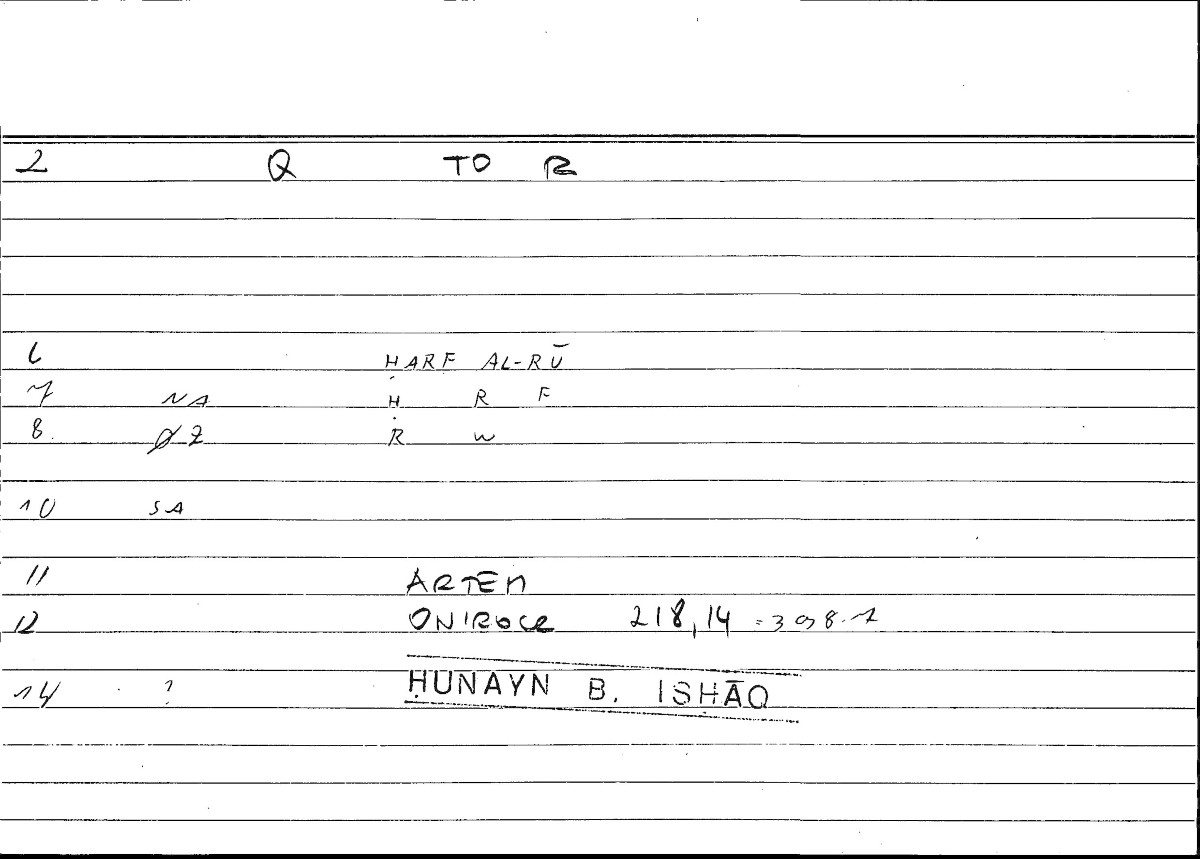 2 Q TO R
6 ḤARF AL-RŪ
7 NA Ḥ R F
8 Ø Z R W
10 SA
11 ARTEM
12 ONIROCR 218,14 = 398.7
14 ? ḤUNAYN B. ISḤĀQ